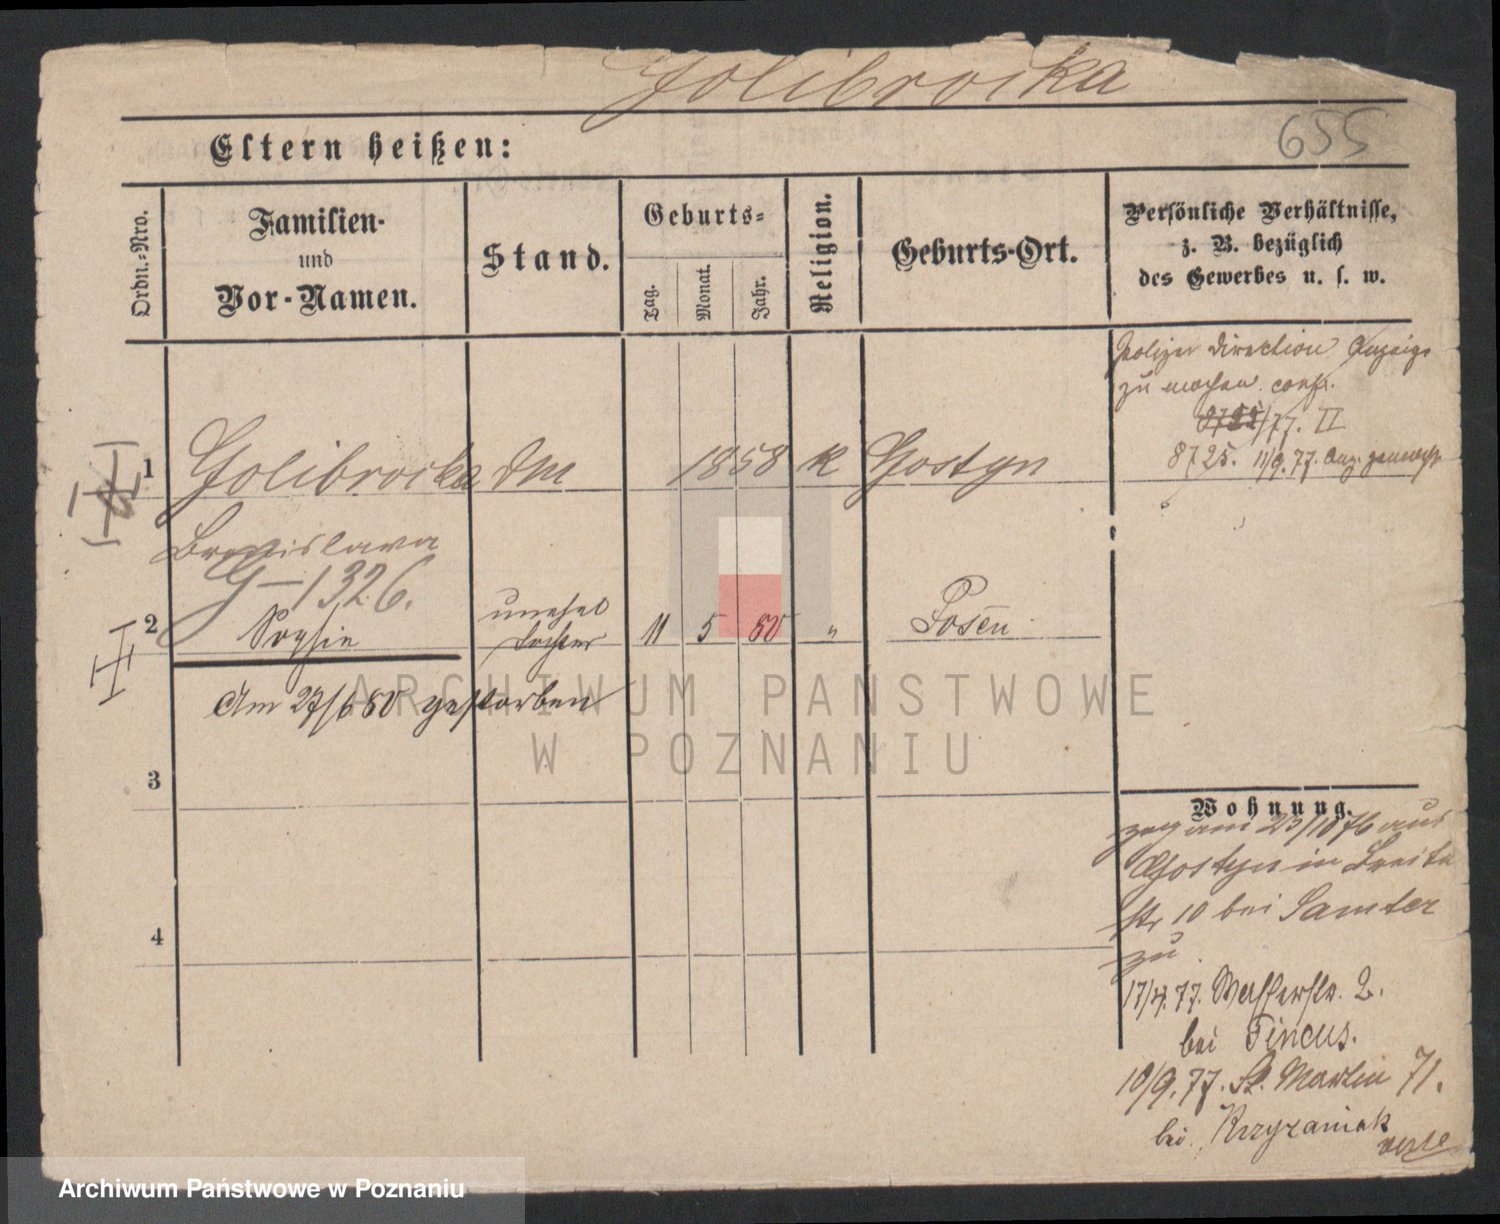 Golibrocka
655
Eltern heißen:
Ordn.-Nro.
Familien-
und
Vor-Namen.
Stand.
Geburts-
Tag.
Monat.
Jahr.
Religion.
Geburts-Ort.
Persönliche Verhältnisse,
z. B. bezüglich
des Gewerbes u. s. w.
Polizei Direction Anzeige
zu machen
8725/77. II
8725. 11/9. 77. Anz. gemacht
1 Golibrocka DM 1858 K Gostyn
Bronislawa
G-1326.
2 Sophie unehel Tochter 11 5 80 " Posen
Am 27/6 80 gestorben
ARCHIWUM PAŃSTWOWE
W POZNANIU
3
4
Wohnung.
zog am 23/10 76 aus
Gostyn in Breite
str 10 bei Samter
zu
17/4. 77. Wasserstr. 2.
bei Pincus.
10/9. 77. St. Martin 71.
bei Krzyzaniak
Archiwum Państwowe w Poznaniu